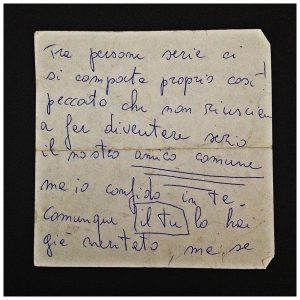 Tra persone serie ci
si comporta proprio così
peccato che non riuscirai
a far diventare serio
il nostro amico comune
ma io confido in te.
comunque il tu lo hai
già meritato, ma se